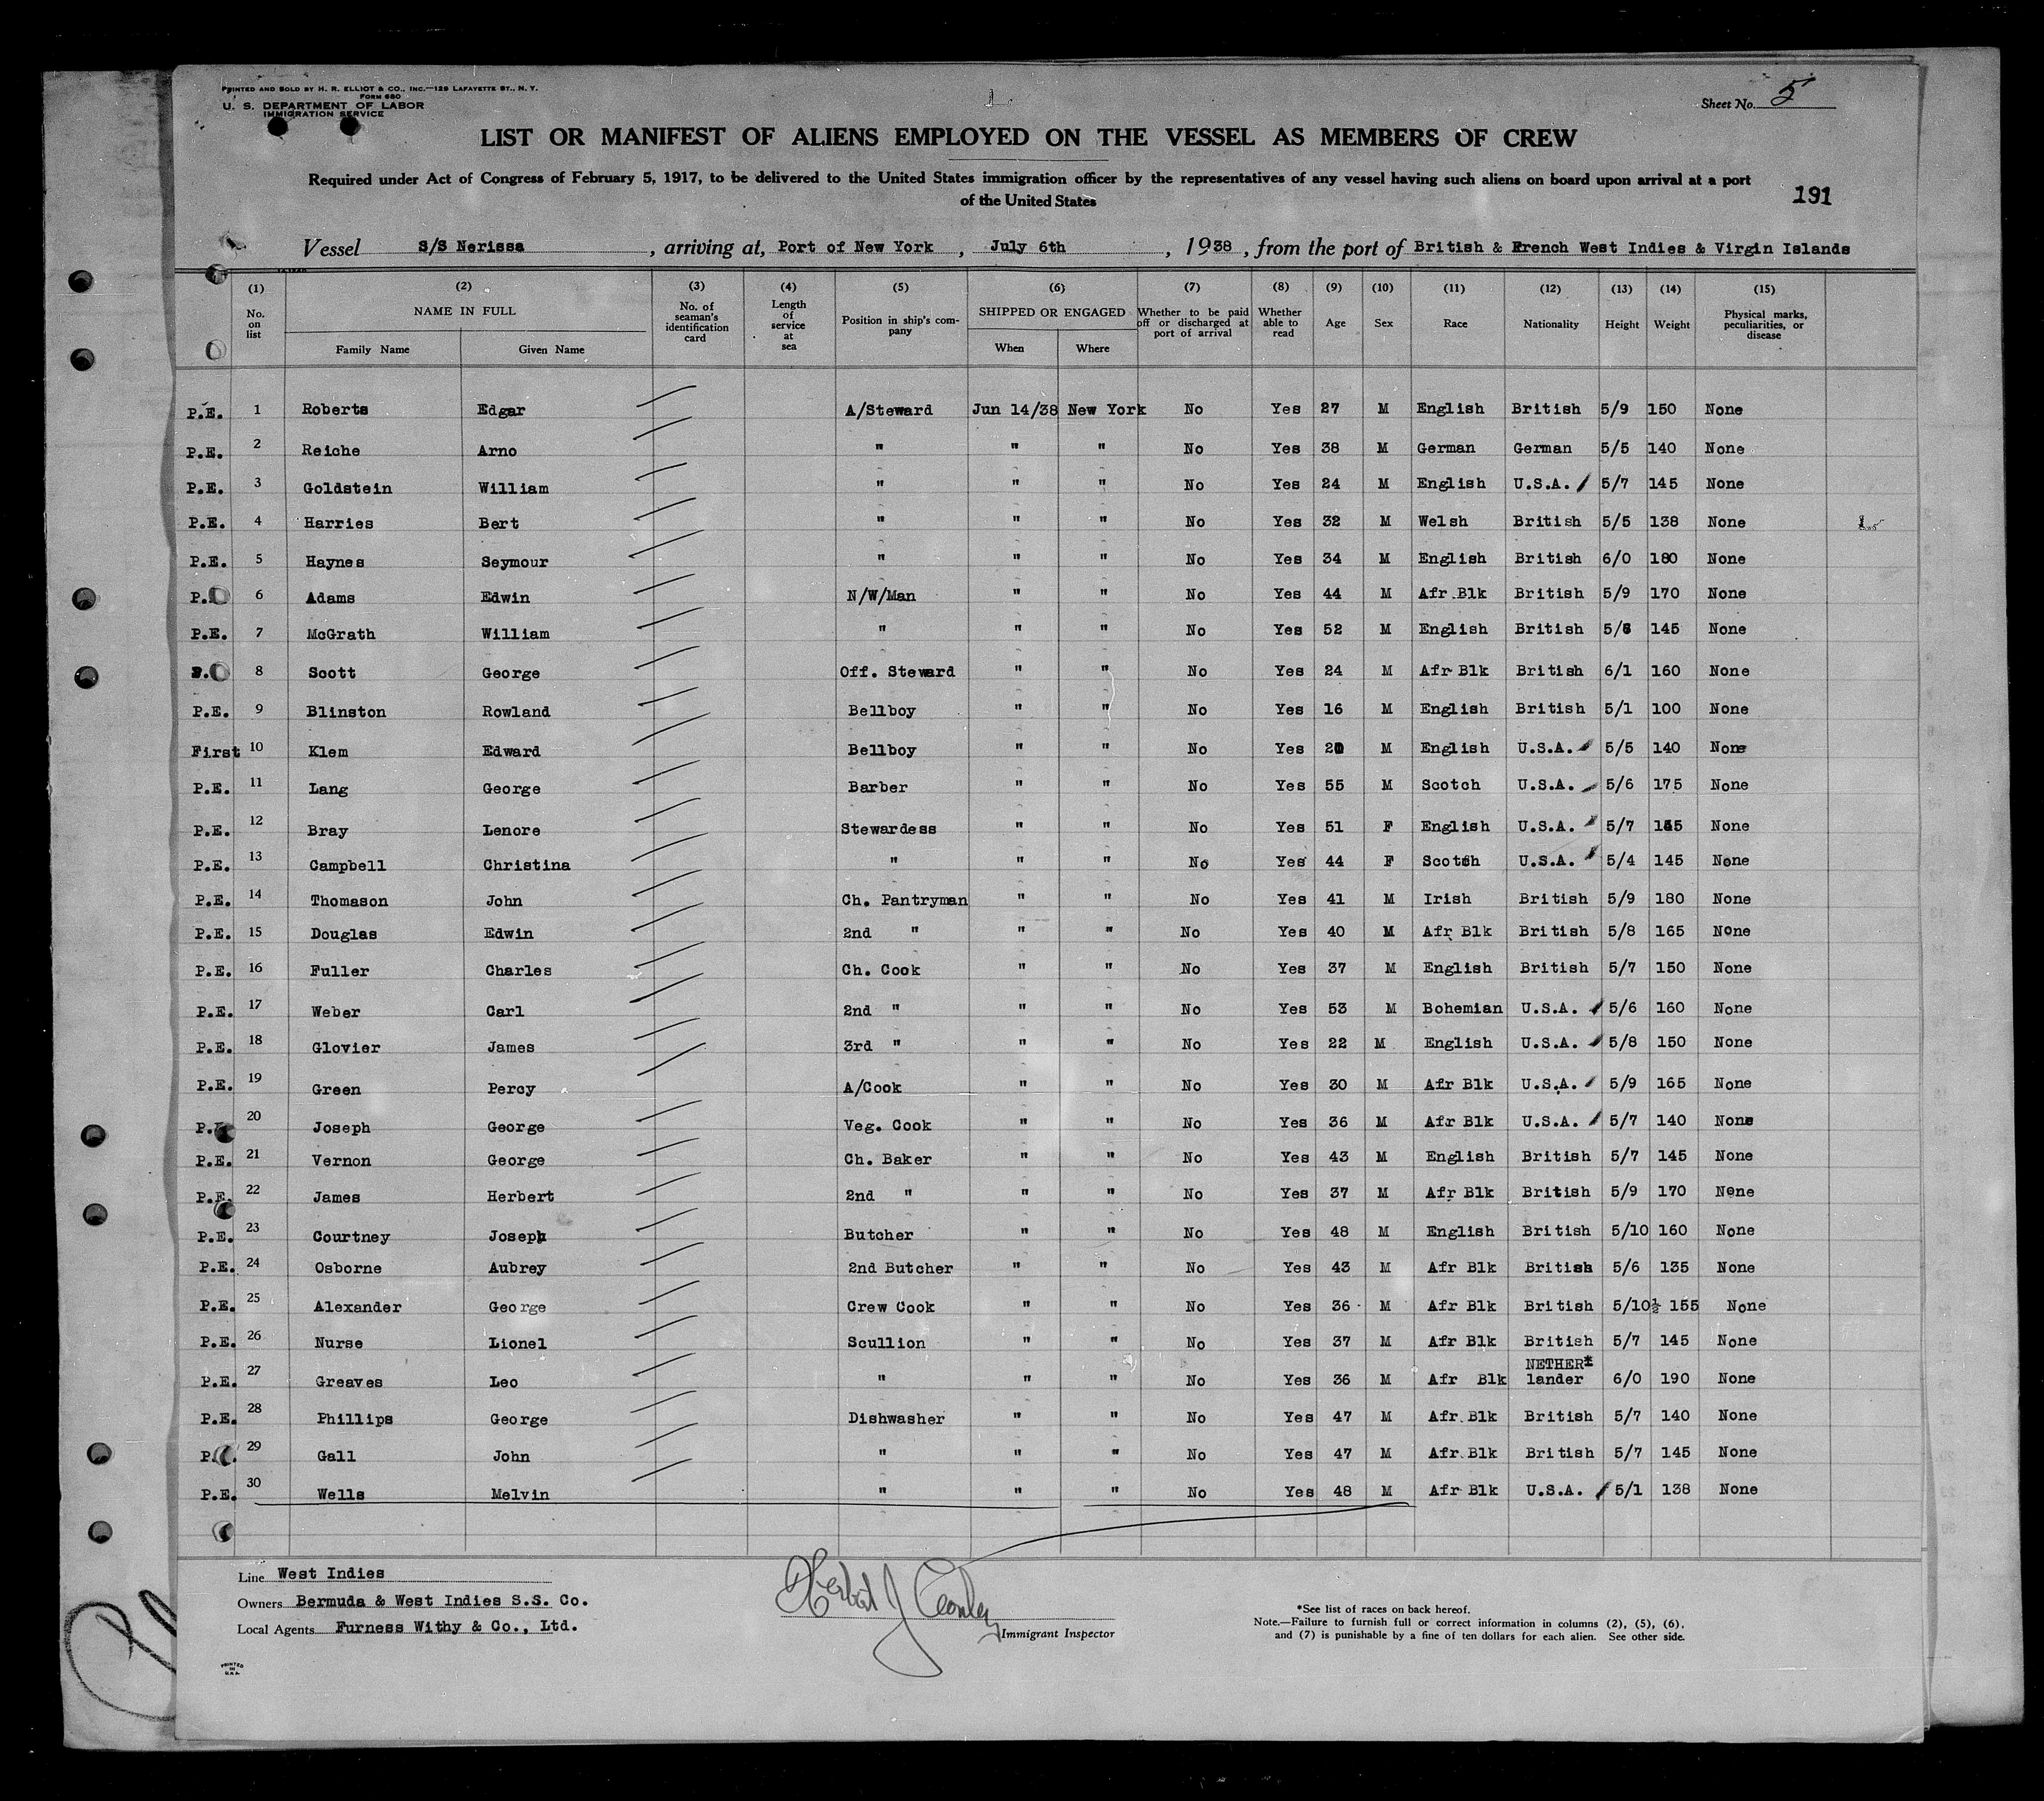 PRINTED AND SOLD BY H. R. ELLIOT & CO., INC.—129 LAFAYETTE ST., N. Y.
FORM 680
U. S. DEPARTMENT OF LABOR
IMMIGRATION SERVICE
Sheet No. 5
LIST OR MANIFEST OF ALIENS EMPLOYED ON THE VESSEL AS MEMBERS OF CREW
Required under Act of Congress of February 5, 1917, to be delivered to the United States immigration officer by the representatives of any vessel having such aliens on board upon arrival at a port
of the United States
191
Vessel S/S Nerissa, arriving at, Port of New York, July 6th, 1938, from the port of British & French West Indies & Virgin Islands
(1) No. on list (2) NAME IN FULL Family Name Given Name (3) No. of seaman's identification card (4) Length of service at sea (5) Position in ship's company (6) SHIPPED OR ENGAGED When Where (7) Whether to be paid off or discharged at port of arrival (8) Whether able to read (9) Age (10) Sex (11) Race (12) Nationality (13) Height (14) Weight (15) Physical marks, peculiarities, or disease
P.E. 1 Roberts Edgar A/Steward Jun 14/38 New York No Yes 27 M English British 5/9 150 None
P.E. 2 Reiche Arno " " " No Yes 38 M German German 5/5 140 None
P.E. 3 Goldstein William " " " No Yes 24 M English U.S.A. 5/7 145 None
P.E. 4 Harries Bert " " " No Yes 32 M Welsh British 5/5 138 None
P.E. 5 Haynes Seymour " " " No Yes 34 M English British 6/0 180 None
P. 6 Adams Edwin N/W/Man " " No Yes 44 M Afr Blk British 5/9 170 None
P.E. 7 McGrath William " " " No Yes 52 M English British 5/ 145 None
8 Scott George Off. Steward " " No Yes 24 M Afr Blk British 6/1 160 None
P.E. 9 Blinston Rowland Bellboy " " No Yes 16 M English British 5/1 100 None
First 10 Klem Edward Bellboy " " No Yes M English U.S.A. 5/5 140 None
P.E. 11 Lang George Barber " " No Yes 55 M Scotch U.S.A. 5/6 175 None
P.E. 12 Bray Lenore Stewardess " " No Yes 51 F English U.S.A. 5/7 None
P.E. 13 Campbell Christina " " " No Yes 44 F Scotch U.S.A. 5/4 145 None
P.E. 14 Thomason John Ch. Pantryman " " No Yes 41 M Irish British 5/9 180 None
P.E. 15 Douglas Edwin 2nd " " " No Yes 40 M Afr Blk British 5/8 165 None
P.E. 16 Fuller Charles Ch. Cook " " No Yes 37 M English British 5/7 150 None
P.E. 17 Weber Carl 2nd " " " No Yes 53 M Bohemian U.S.A. 5/6 160 None
P.E. 18 Glovier James 3rd " " " No Yes 22 M English U.S.A. 5/8 150 None
P.E. 19 Green Percy A/Cook " " No Yes 30 M Afr Blk U.S.A. 5/9 165 None
P.E. 20 Joseph George Veg. Cook " " No Yes 36 M Afr Blk U.S.A. 5/7 140 None
P.E. 21 Vernon George Ch. Baker " " No Yes 43 M English British 5/7 145 None
P.E. 22 James Herbert 2nd " " " No Yes 37 M Afr Blk British 5/9 170 None
P.E. 23 Courtney Joseph Butcher " " No Yes 48 M English British 5/10 160 None
P.E. 24 Osborne Aubrey 2nd Butcher " " No Yes 43 M Afr Blk British 5/6 135 None
P.E. 25 Alexander George Crew Cook " " No Yes 36 M Afr Blk British 5/10½ 155 None
P.E. 26 Nurse Lionel Scullion " " No Yes 37 M Afr Blk British 5/7 145 None
P.E. 27 Greaves Leo " " " No Yes 36 M Afr Blk NETHER* lander 6/0 190 None
P.E. 28 Phillips George Dishwasher " " No Yes 47 M Afr Blk British 5/7 140 None
P. 29 Gall John " " " No Yes 47 M Afr Blk British 5/7 145 None
P.E. 30 Wells Melvin " " " No Yes 48 M Afr Blk U.S.A. 5/1 138 None
Line West Indies
Owners Bermuda & West Indies S.S. Co.
Local Agents Furness Withy & Co., Ltd.
Herbert J
Immigrant Inspector
*See list of races on back hereof.
Note.—Failure to furnish full or correct information in columns (2), (5), (6),
and (7) is punishable by a fine of ten dollars for each alien. See other side.
PRINTED
IN
U.S.A.